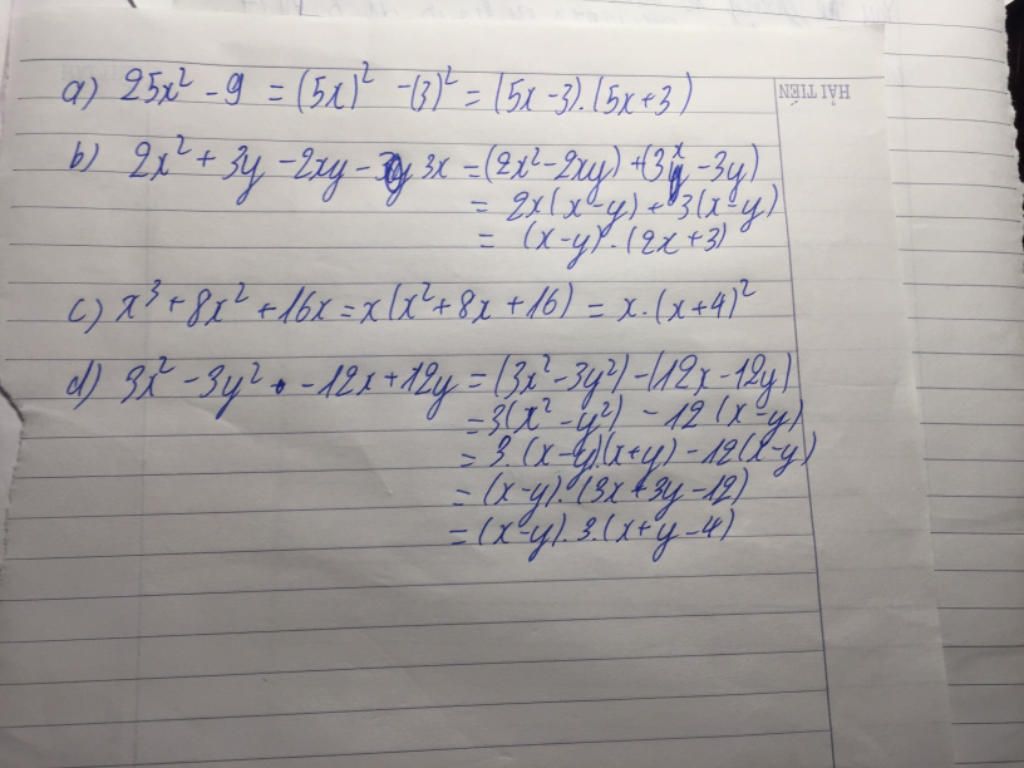 HẢI TIẾN
a) 25x² - 9 = (5x)² - (3)² = (5x - 3).(5x + 3)
b) 2x² + 3y - 2xy - 3x = (2x² - 2xy) + (3x - 3y)
= 2x(x - y) + 3(x - y)
= (x - y).(2x + 3)
c) x³ + 8x² + 16x = x(x² + 8x + 16) = x.(x + 4)²
d) 3x² - 3y² - 12x + 12y = (3x² - 3y²) - (12x - 12y)
= 3(x² - y²) - 12(x - y)
= 3.(x - y)(x + y) - 12(x - y)
= (x - y).(3x + 3y - 12)
= (x - y).3.(x + y - 4)